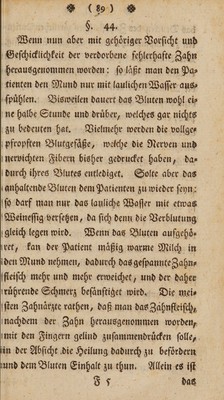 ( 89 )
§. 44.
Wenn nun aber mit gehöriger Vorsicht und
Geschicklichkeit der verdorbene fehlerhafte Zahn
herausgenommen worden: so läßt man den Pa-
tienten den Mund nur mit laulichen Wasser aus-
spühlen. Bisweilen dauert das Bluten wohl ei-
ne halbe Stunde und drüber, welches gar nichts
zu bedeuten hat. Vielmehr werden die vollge-
pfropften Blutgefäße, welche die Nerven und
nervichten Fibern bisher gedrucket haben, da-
durch ihres Blutes entlediget. Solte aber das
anhaltende Bluten dem Patienten zu wieder seyn:
so darf man nur das lauliche Wasser mit etwas
Weinessig versetzen, da sich denn die Verblutung
gleich legen wird. Wenn das Bluten aufgehö-
ret, kan der Patient mäßig warme Milch in
den Mund nehmen, dadurch das gespannte Zahn-
fleisch mehr und mehr erweichet, und der daher
rührende Schmerz besänftiget wird. Die mei-
sten Zahnärzte rathen, daß man das Zahnfleisch,
nachdem der Zahn herausgenommen worden,
mit den Fingern gelind zusammendrücken solle,
in der Absicht die Heilung dadurch zu befördern
und dem Bluten Einhalt zu thun. Allein es ist
F 5 das